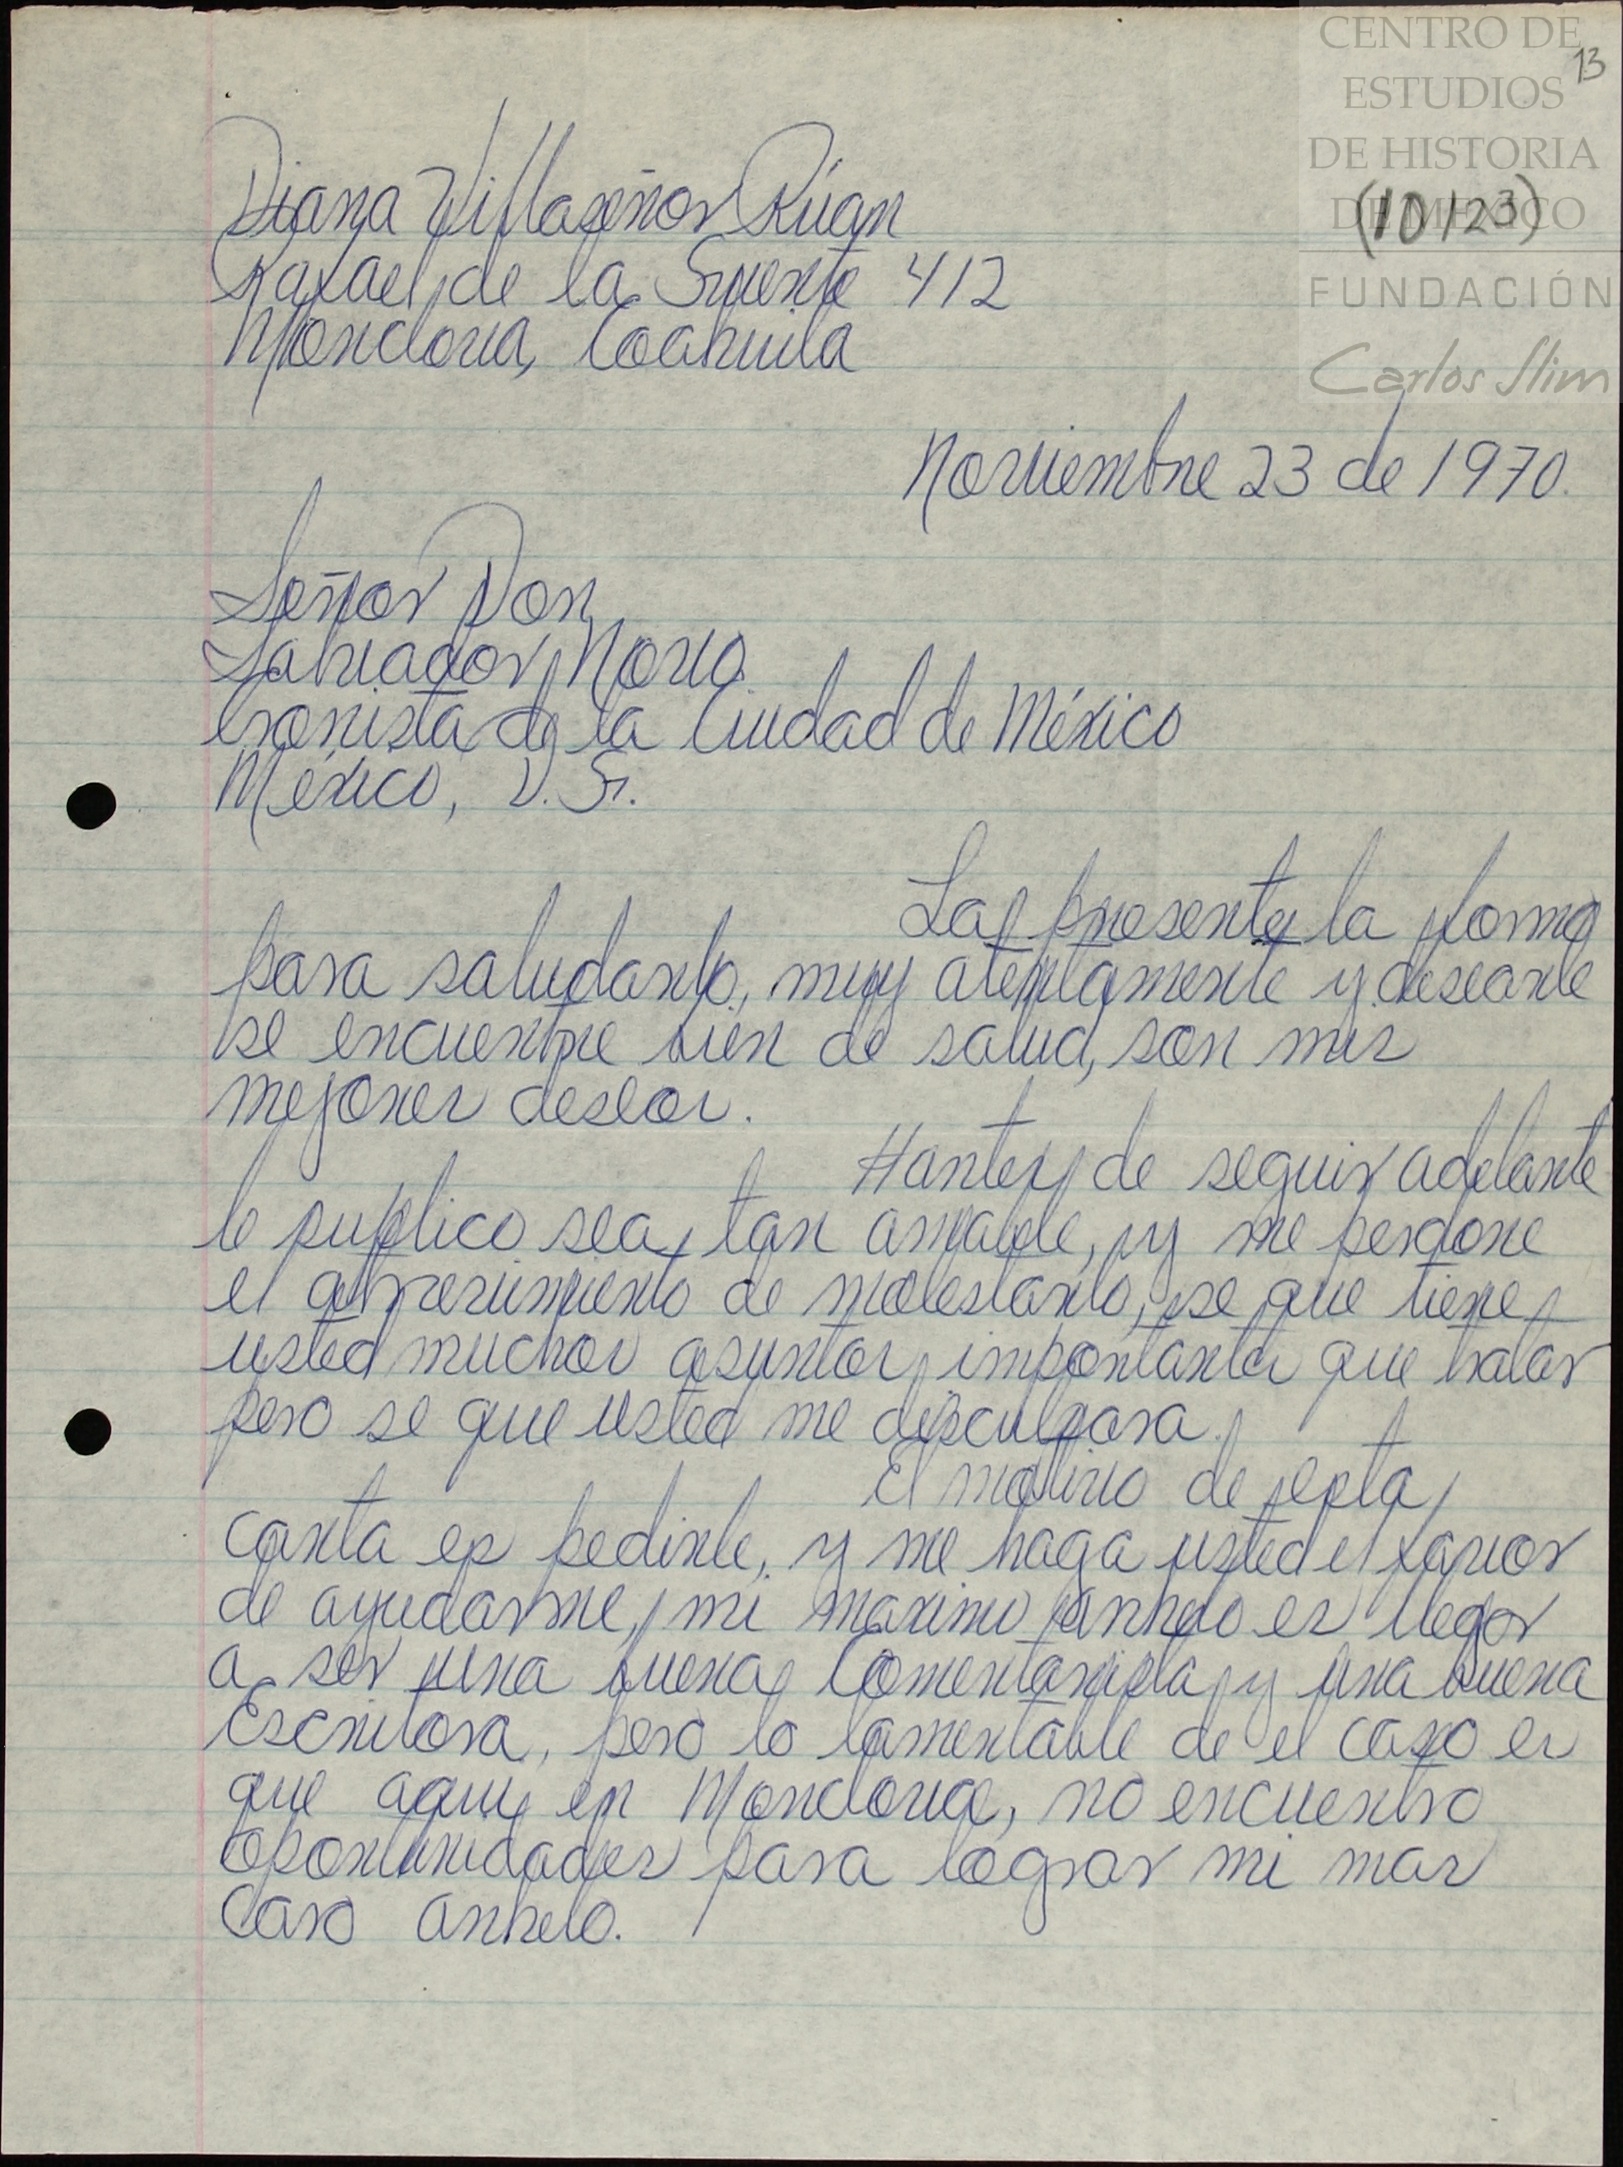 CENTRO DE
ESTUDIOS
DE HISTORIA
DE MÉXICO
FUNDACIÓN
Carlos Slim
13
(10/23)
Diana Villaseñor Rúan
Rafael de la Fuente 412
Monclova, Coahuila
Noviembre 23 de 1970.
Señor Don
Salvador Novo.
Cronista de la Ciudad de México
México, D.F.
La presente la formo
para saludarlo, muy atentamente y desearle
se encuentre bien de salud, son mis
mejores deseos.
Hantes de seguir adelante
le suplico sea tan amable, y me perdone
el atrevimiento de molestarlo, se que tiene
usted muchos asuntos importantes que tratar
pero se que usted me disculpara.
El motivo de esta
carta es pedirle, y me haga usted el favor
de ayudarme, mi maximo anhelo es llegar
a ser una buena Comentarista y una buena
Escritora, pero lo lamentable de el caso es
que aquy en Monclova, no encuentro
oportunidades para lograr mi mas
caro anhelo.